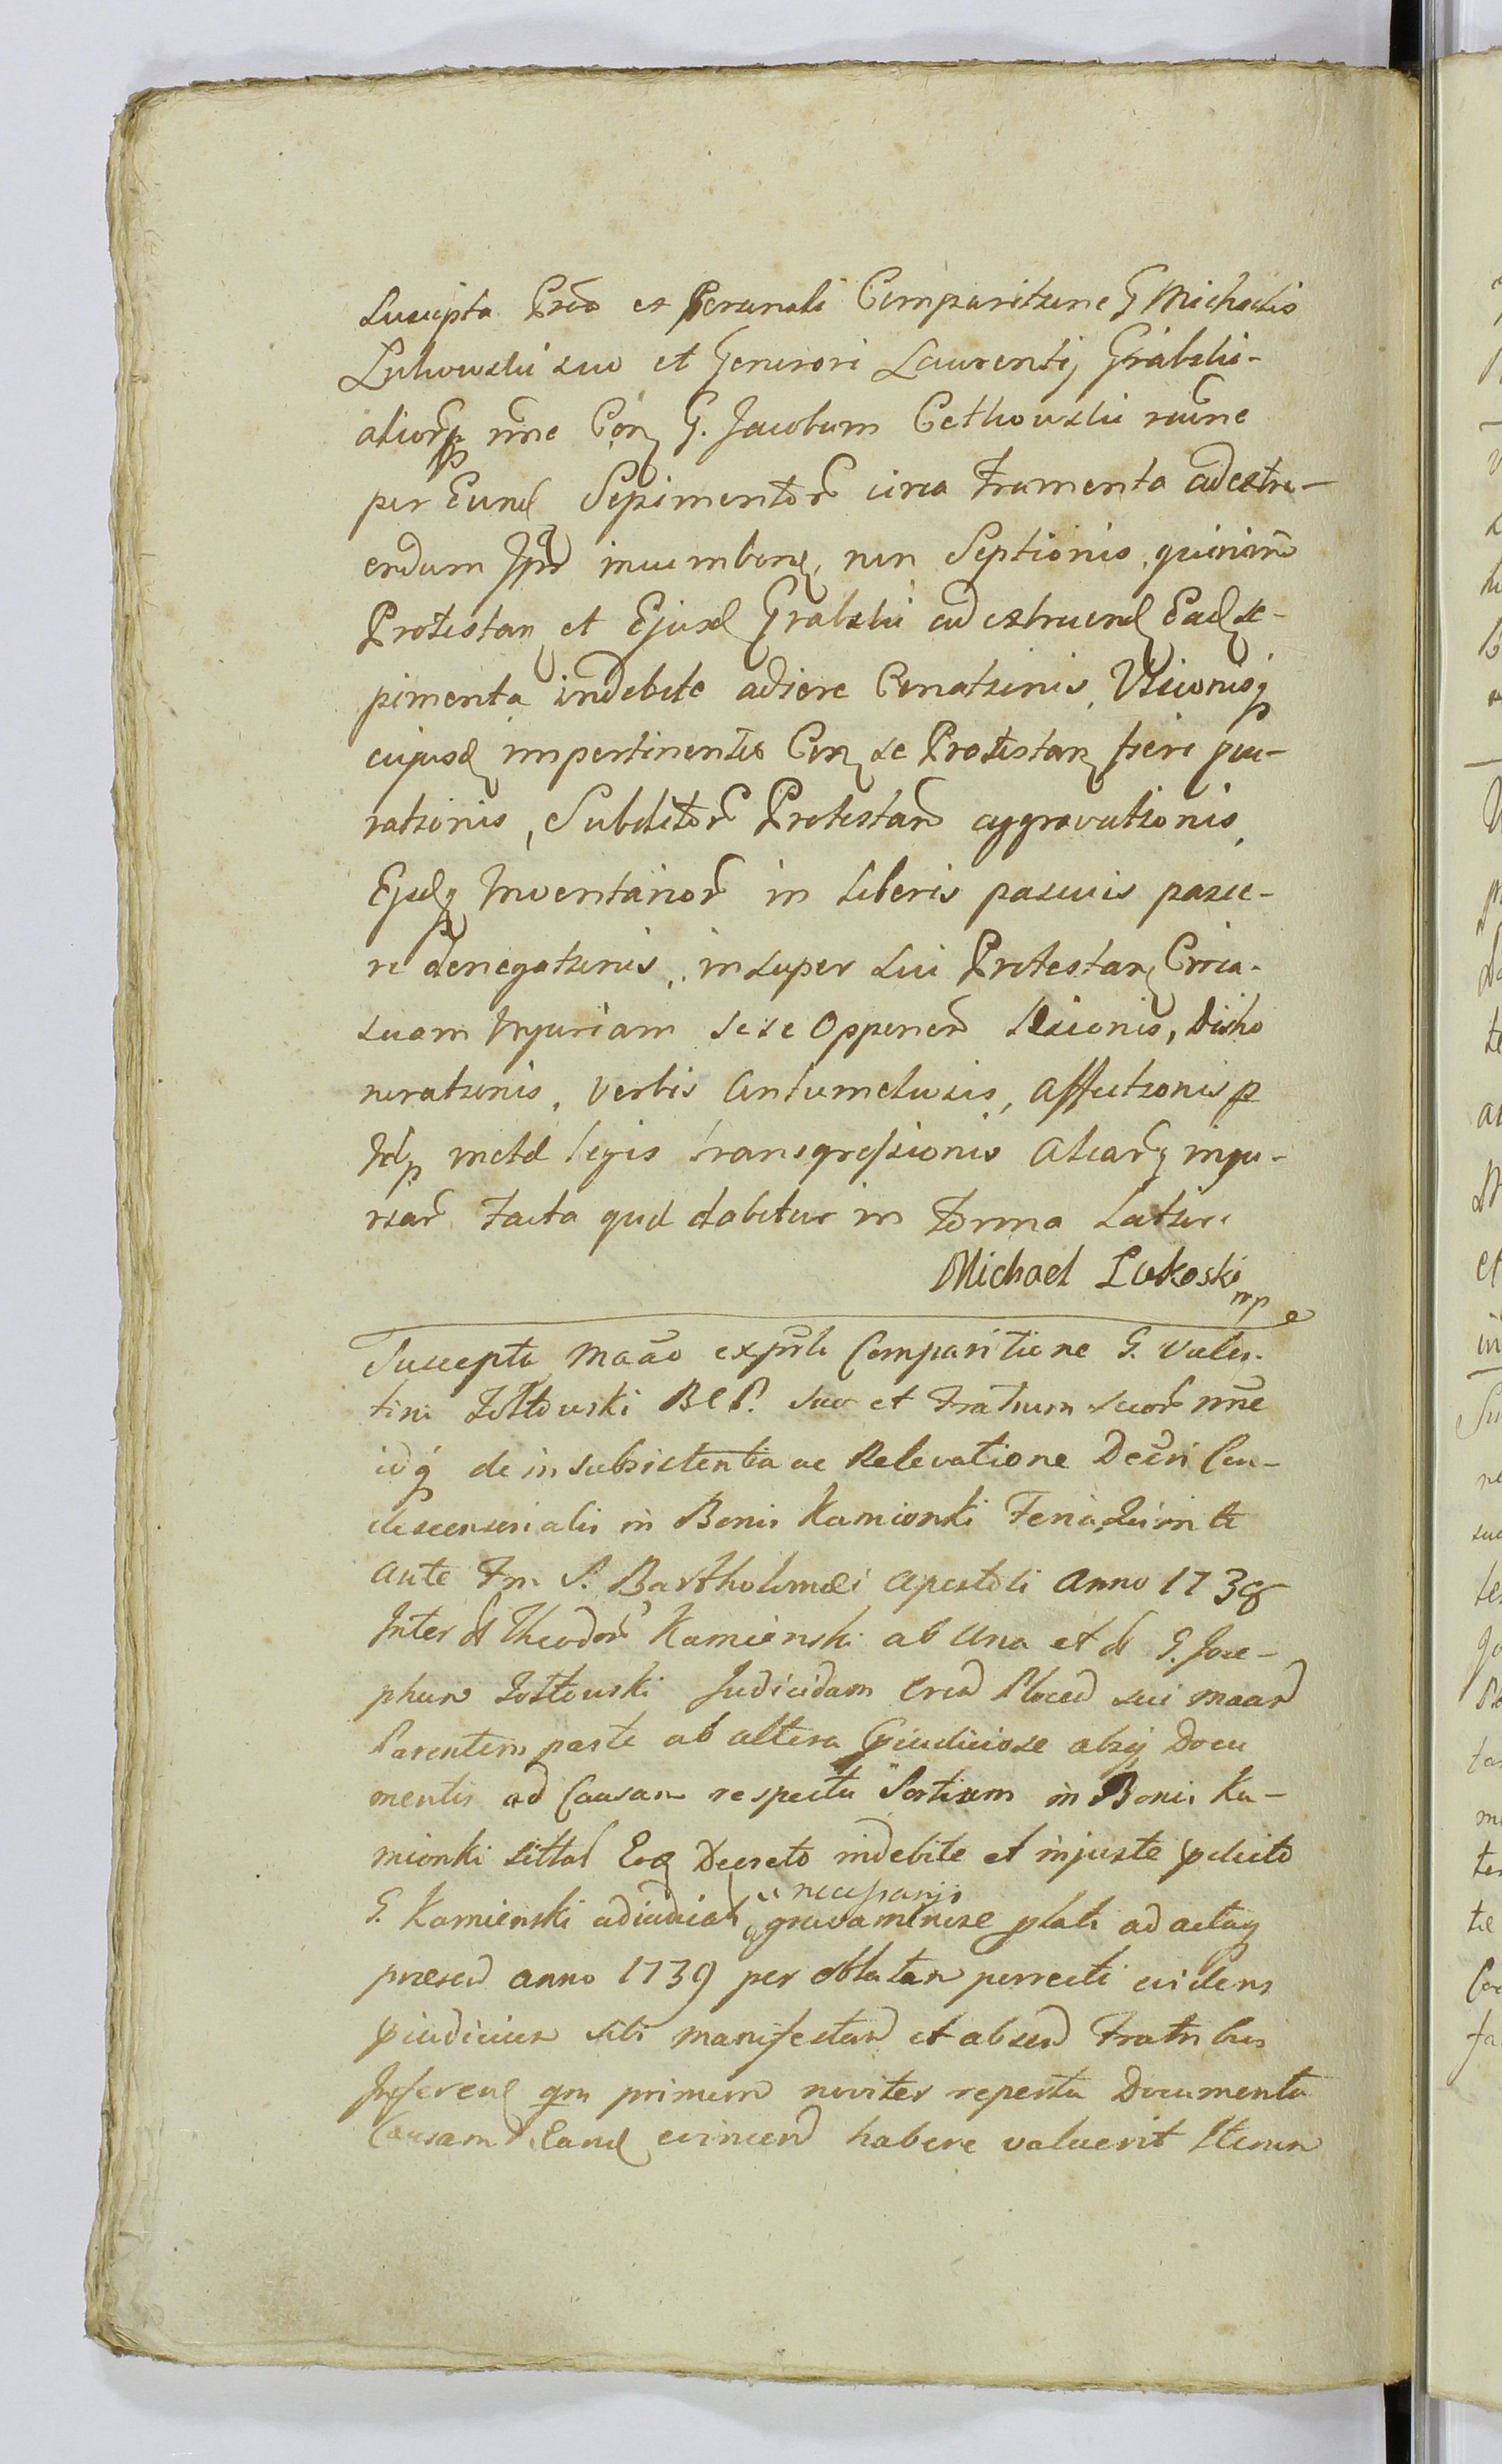 Suscepta Prõo ex personali Comparitione G Michaelis
Lukowski suo et Generosi Laurentij Grabski
aliorq nñe Con G. Jacobum Cethowski rãne
per Eund Sepimentor̃ circa frumenta ad extru-
endum Ipsi incumben, non Septionis, quinimo
Protestan et Ejusd Grabski ad extruend Ead se-
pimenta indebite adigere Conationis, Visionisq
cujusd impertinentis Con se Protestan fieri pro-
rationis, Subditor̃ Protestan aggravationis,
Ejusdq Inventarior̃ in liberis pascuis pasce-
re denegationis, insuper sui Protestan Circa
suam Injuriam sese Opponen Disho
norationis, verbis Contumeliosis, Affectionisq
Idq metd legis transgressionis aliarq inju-
riar̃ facta qud dabitur in forma Latiori
Michael Lukoski mp
Suscepta Maão ex psñli Comparitione G. Valen-
tini Zołtowski B C P. suo et Fratrum suor̃ nñe
idq de insubsistentia ac Relevatione Decri Con-
descensorialis in Bonis Kamionki Feria Quinta
ante Fm S. Bartholomæi Apostoli Anno 1738
Inter G Theodor̃ Kamienski ab Una et G. Jose-
phum Zołtowski Judicidam sui Maan
Parentem parte ab altera pjudiciose absq Docu
mentis ad Causam respectu Sortium in Bonis Ka-
mionki sittas Eoq Decreto indebite et injuste
G. Kamienski adiudicat gravaminose plati ad actaq
præsen anno 1739 per oblatam porrecti evidens
pjudicium sibi manifestan et absen Fratribus
Inferend qm primum noviter reperta Documenta
Causam Eand evincend habere valuerit Iterum